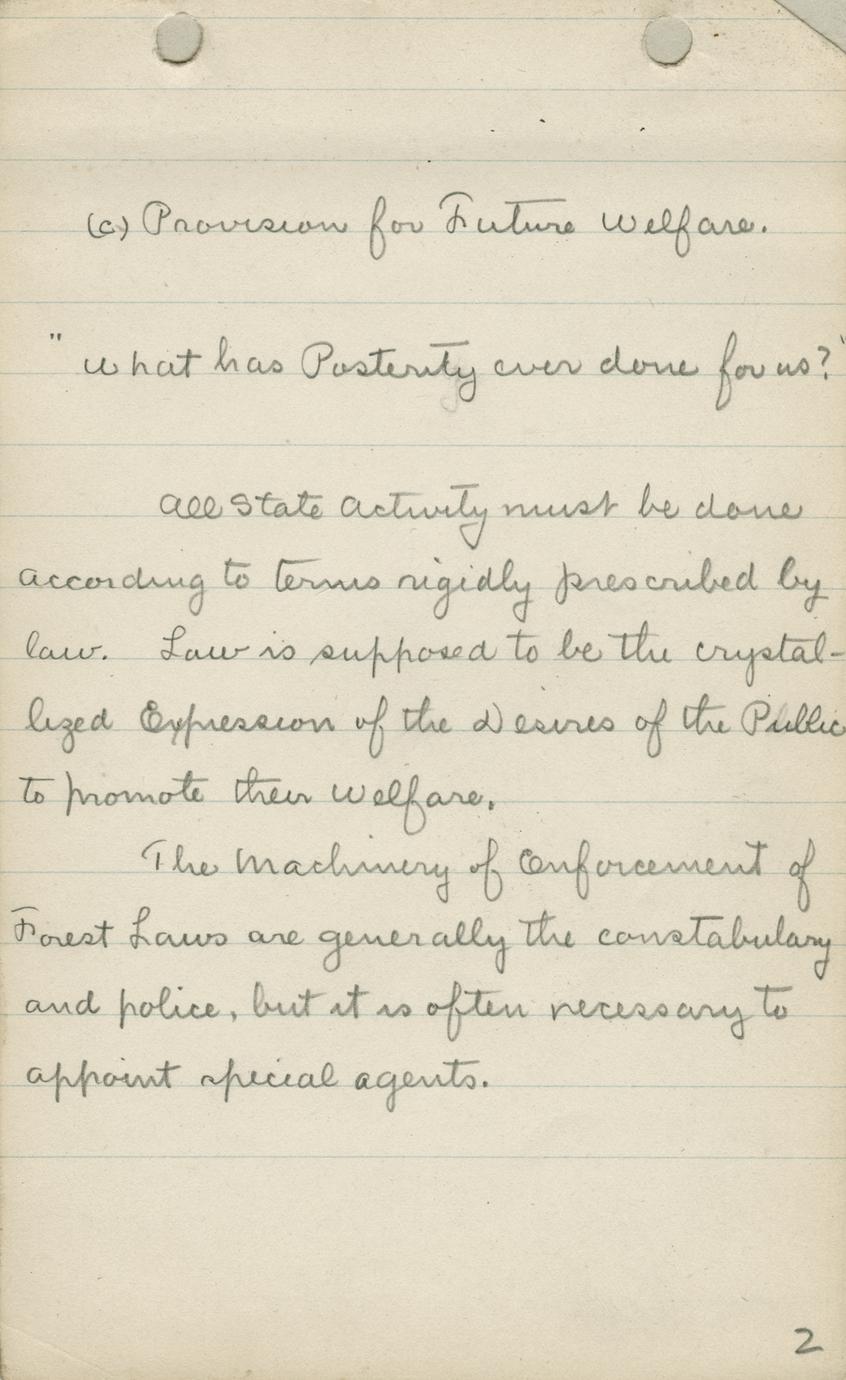 (c) Provision for Future Welfare.
"What has Posterity ever done for us?"
All State Activity must be done
according to terms rigidly prescribed by
law. Law is supposed to be the crystal-
lized Expression of the Desires of the Public
to promote their Welfare.
The Machinery of Enforcement of
Forest Laws are generally the constabulary
and police, but it is often necessary to
appoint special agents.
2